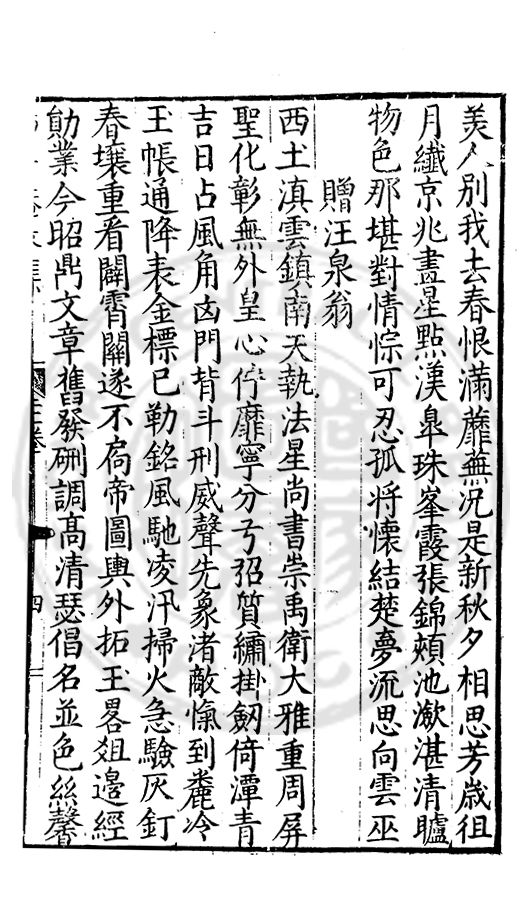 美人別我去春恨滿蘼蕪況是新秋夕相思芳歲徂
月纖京兆畫星點漢臯珠峯霞張錦頰池瀲湛清矑
物色那堪對情悰可忍孤將懷結楚夢流思向雲巫
贈汪泉翁
西土滇雲鎮南天執法星尚書崇禹衛大雅重周屏
聖化彰無外皇心佇靡寧分弓弨質繡掛劒倚潭青
吉日占風角凶門背斗刑威聲先象渚敵愾到麊泠
玉帳通降表金標已勒銘風馳凌汛掃火急驗灰釘
春壤重看闢霄關遂不扃帝圖輿外拓玉畧俎邊經
勛業今昭鼎文章舊發硎調高清瑟倡名並色絲馨
三卷
四